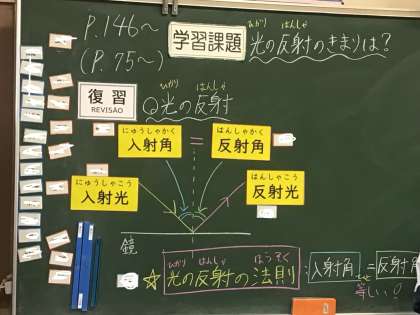 P.146～
(P.75～)
学習課題
ひかり はんしゃ
光の反射のきまりは?
復習
REVISÃO
ひかり はんしゃ
Q光の反射
にゅうしゃかく
入射角
=
はんしゃかく
反射角
にゅうしゃこう
入射光
はんしゃこう
反射光
鏡
ひかり はんしゃ ほうそく
☆光の反射の法則:入射角=反射角
等しい!